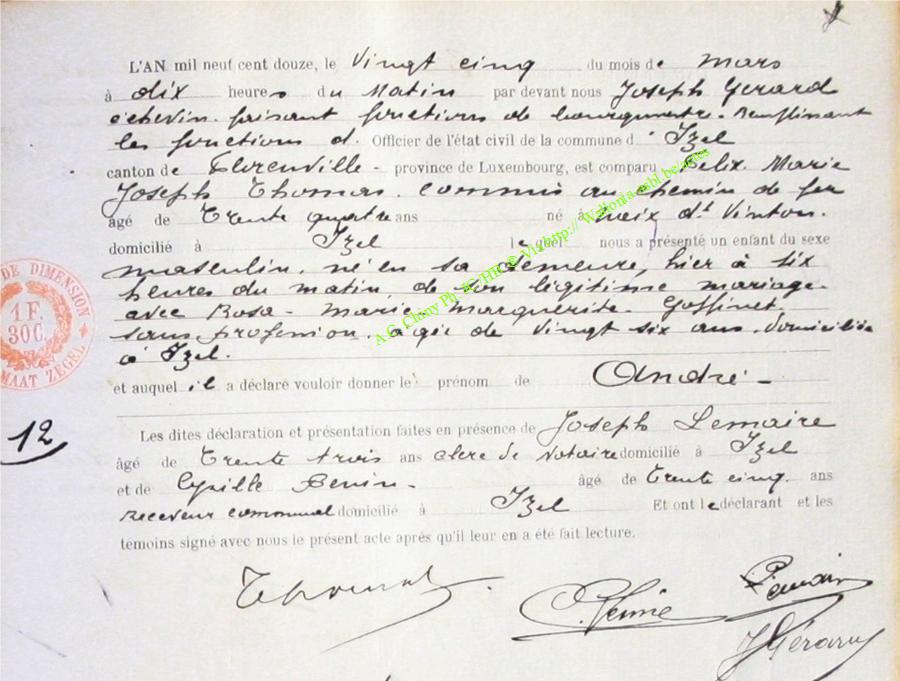 L'AN mil neuf cent douze, le vingt cinq du mois de mars
à dix heures du matin par devant nous Joseph Gerard
échevin faisant fonctions de bourgmestre. Remplissant
les fonctions d. Officier de l'état civil de la commune d' Izel
canton de Florenville - province de Luxembourg, est comparu Felix. Marie
Joseph Thomas. commis au chemin de fer
âgé de Trente quatre ans né à
domicilié à Izel lequel nous a présenté un enfant du sexe
masculin. né en sa demeure, hier à six
heures du matin de son légitime mariage
avec Rosa - Marie Marguerite Goffinet
sans profession. agée de vingt six ans. domiciliée
à Izel.
et auquel il a déclaré vouloir donner le prénom de André -
12
Les dites déclaration et présentation faites en présence de Joseph Lemaire
âgé de Trente trois ans clerc de Notaire domicilié à Izel
et de Benin - âgé de Trente cinq ans
Receveur communal domicilié à Izel Et ont le déclarant et les
témoins signé avec nous le présent acte après qu'il leur en a été fait lecture.
Thomas
J Gérard
DE DIMENSION
1 F.
30C.
MAAT ZEGEL